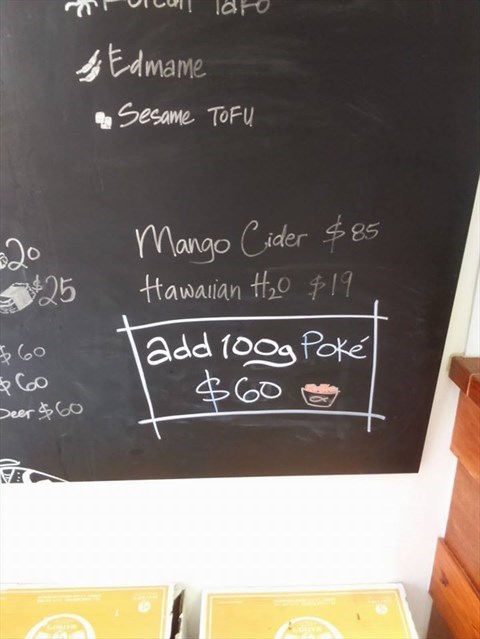 Tako
Edmame
Sesame TOFU
Mango Cider $85
Hawaiian H2O $19
20
$25
$60
$60
Beer $60
add 100g Poké
$60